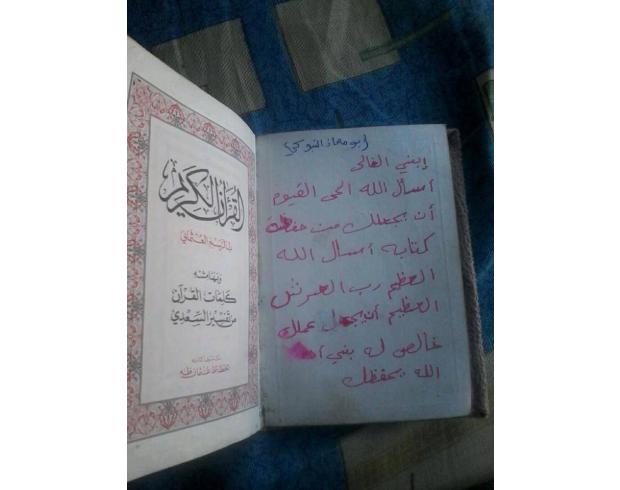 القرآن الكريم
بالرسم العثماني
وبهامشه
كلمات القرآن
من تفسير السعدي
إبني الغالي
أسأل الله الحي القيوم
أن يجعلك من حفظة
كتابه أسأل الله
العظيم رب العرش
العظيم أن يجعل عملك
خالص له بني
الله يحفظك